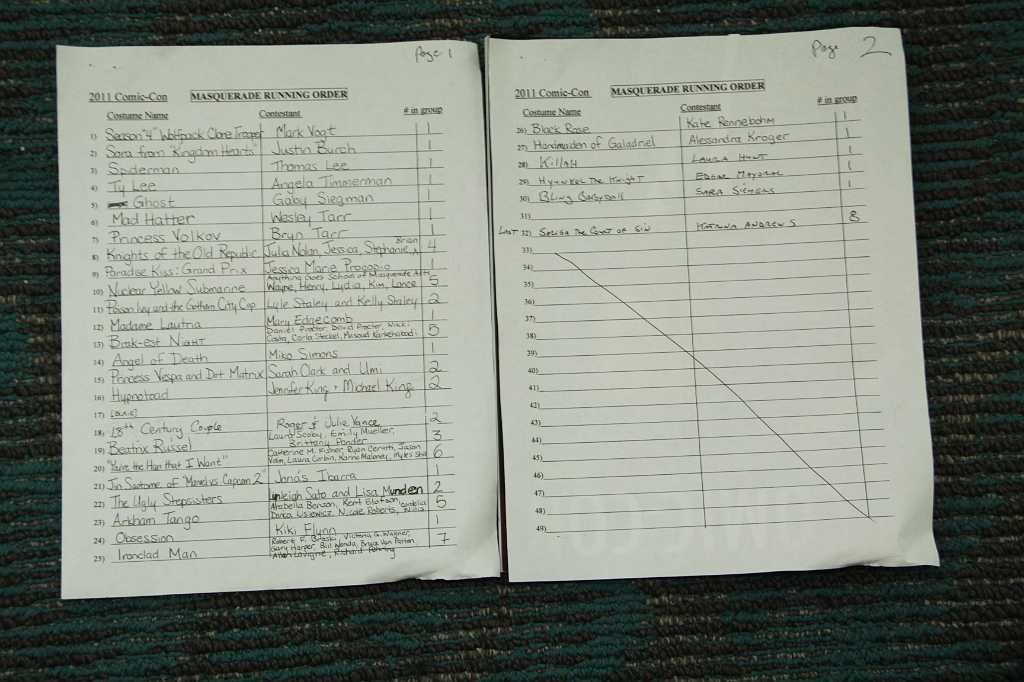 Page 1
2011 Comic-Con MASQUERADE RUNNING ORDER
Costume Name Contestant # in group
1) Season "4" Wolfpack Clone Trooper Mark Vogt 1
2) Sora from "Kingdom Hearts" Justin Burch 1
3) Spiderman Thomas Lee 1
4) Ty Lee Angela Timmerman 1
5) Ghost Gaby Siegman 1
6) Mad Hatter Wesley Tarr 1
7) Princess Volkov Bryn Tarr 1
8) Knights of the Old Republic Julia Nolan, Jessica, Stephanie, Brian 4
9) Paradise Kiss: Grand Prix Jessica Marie Procopio 1
Anything Goes School of Masquerade Arts
10) Nuclear Yellow Submarine Wayne, Henry, Lydia, Kim, Lance 5
11) Poison Ivy and the Gotham City Cop Lyle Staley and Kelly Staley 2
12) Madame Lautria Mary Edgecomb 1
Daniel Proctor, David Proctor, Nikki
13) Brak-est Night Costa, Carla Steckel, Masoud 5
14) Angel of Death Miko Simons 1
15) Princess Vespa and Dot Matrix Sarah Clark and Umi 2
16) Hypnotoad Jennifer King + Michael King 2
17)
18) 18th Century Couple Roger & Julie Vance 2
Laura Scoby, Emily Mueller,
19) Beatrix Russel Brittany Ponder 3
Catherine M. Fisher, Ryan Jason
20) "You're the Han that I Want" Laura Corbin, Karrie Maloney, Myles 6
21) Jin Saotome of "Marvel vs Capcom 2" Jonas Ibarra 1
22) The Ugly Stepsisters Lynleigh Sato and Lisa Munden 2
Arabella Benson, Kent Elofson,
23) Arkham Tango Nicole Roberts, 5
24) Obsession Kiki Flynn 1
Robert F. Victoria G. Wagner,
25) Ironclad Man Gary Harper, Bill Bryce Van Patten 7
Allen Lavigne, Richard Fohring
Page 2
2011 Comic-Con MASQUERADE RUNNING ORDER
Costume Name Contestant # in group
26) Black Rose Kate Rennebohm 1
27) Handmaiden of Galadriel Alessandra Kroger 1
28) Laura Hunt 1
29) The Knight Edgar Mayoral 1
30) Bling Sara 1
31)
LAST 32) the Court of Sin Katrina Andrews 8
33)
34)
35)
36)
37)
38)
39)
40)
41)
42)
43)
44)
45)
46)
47)
48)
49)